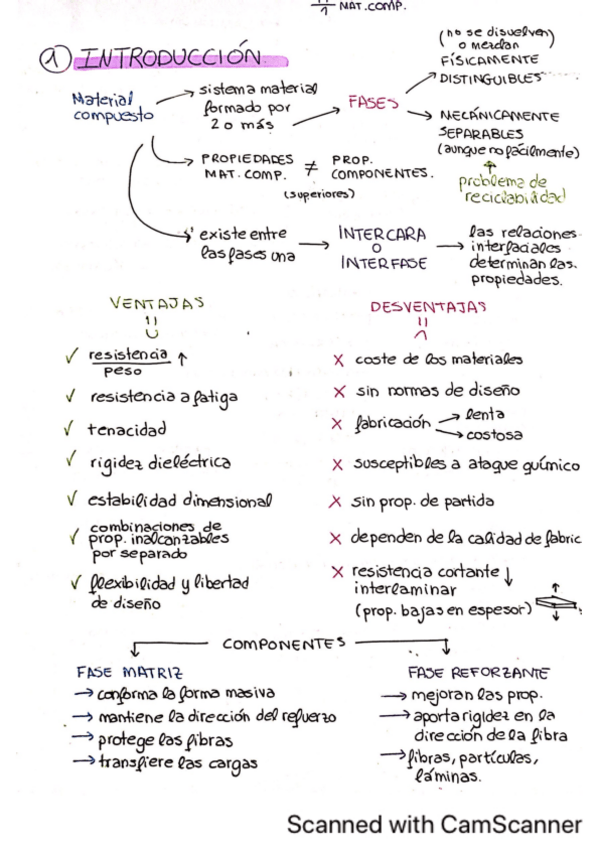 1 NAT.COMP.
1 INTRODUCCIÓN
Material
compuesto
sistema material
formado por
2 o más
FASES
(no se disuelven)
o mezclan
FÍSICAMENTE
DISTINGUIBLES
MECÁNICAMENTE
SEPARABLES
(aunque no fácilmente)
problema de
reciclabilidad
PROPIEDADES
MAT. COMP.
≠
PROP.
COMPONENTES.
(superiores)
existe entre
las fases una
INTERCARA
O
INTERFASE
las relaciones
interfaciales
determinan las
propiedades.
VENTAJAS
✓ resistencia ↑
peso
✓ resistencia a fatiga
✓ tenacidad
✓ rigidez dieléctrica
✓ estabilidad dimensional
✓ combinaciones de
prop. inalcanzables
por separado
✓ flexibilidad y libertad
de diseño
DESVENTAJAS
X coste de los materiales
X sin normas de diseño
X fabricación → lenta
→ costosa
X susceptibles a ataque químico
X sin prop. de partida
X dependen de la calidad de fabric
X resistencia cortante ↓
interlaminar
(prop. bajas en espesor)
COMPONENTES
FASE MATRIZ
→ conforma la forma masiva
→ mantiene la dirección del refuerzo
→ protege las fibras
→ transfiere las cargas
FASE REFORZANTE
→ mejoran las prop.
→ aporta rigidez en la
dirección de la fibra
→ fibras, partículas,
láminas.
Scanned with CamScanner